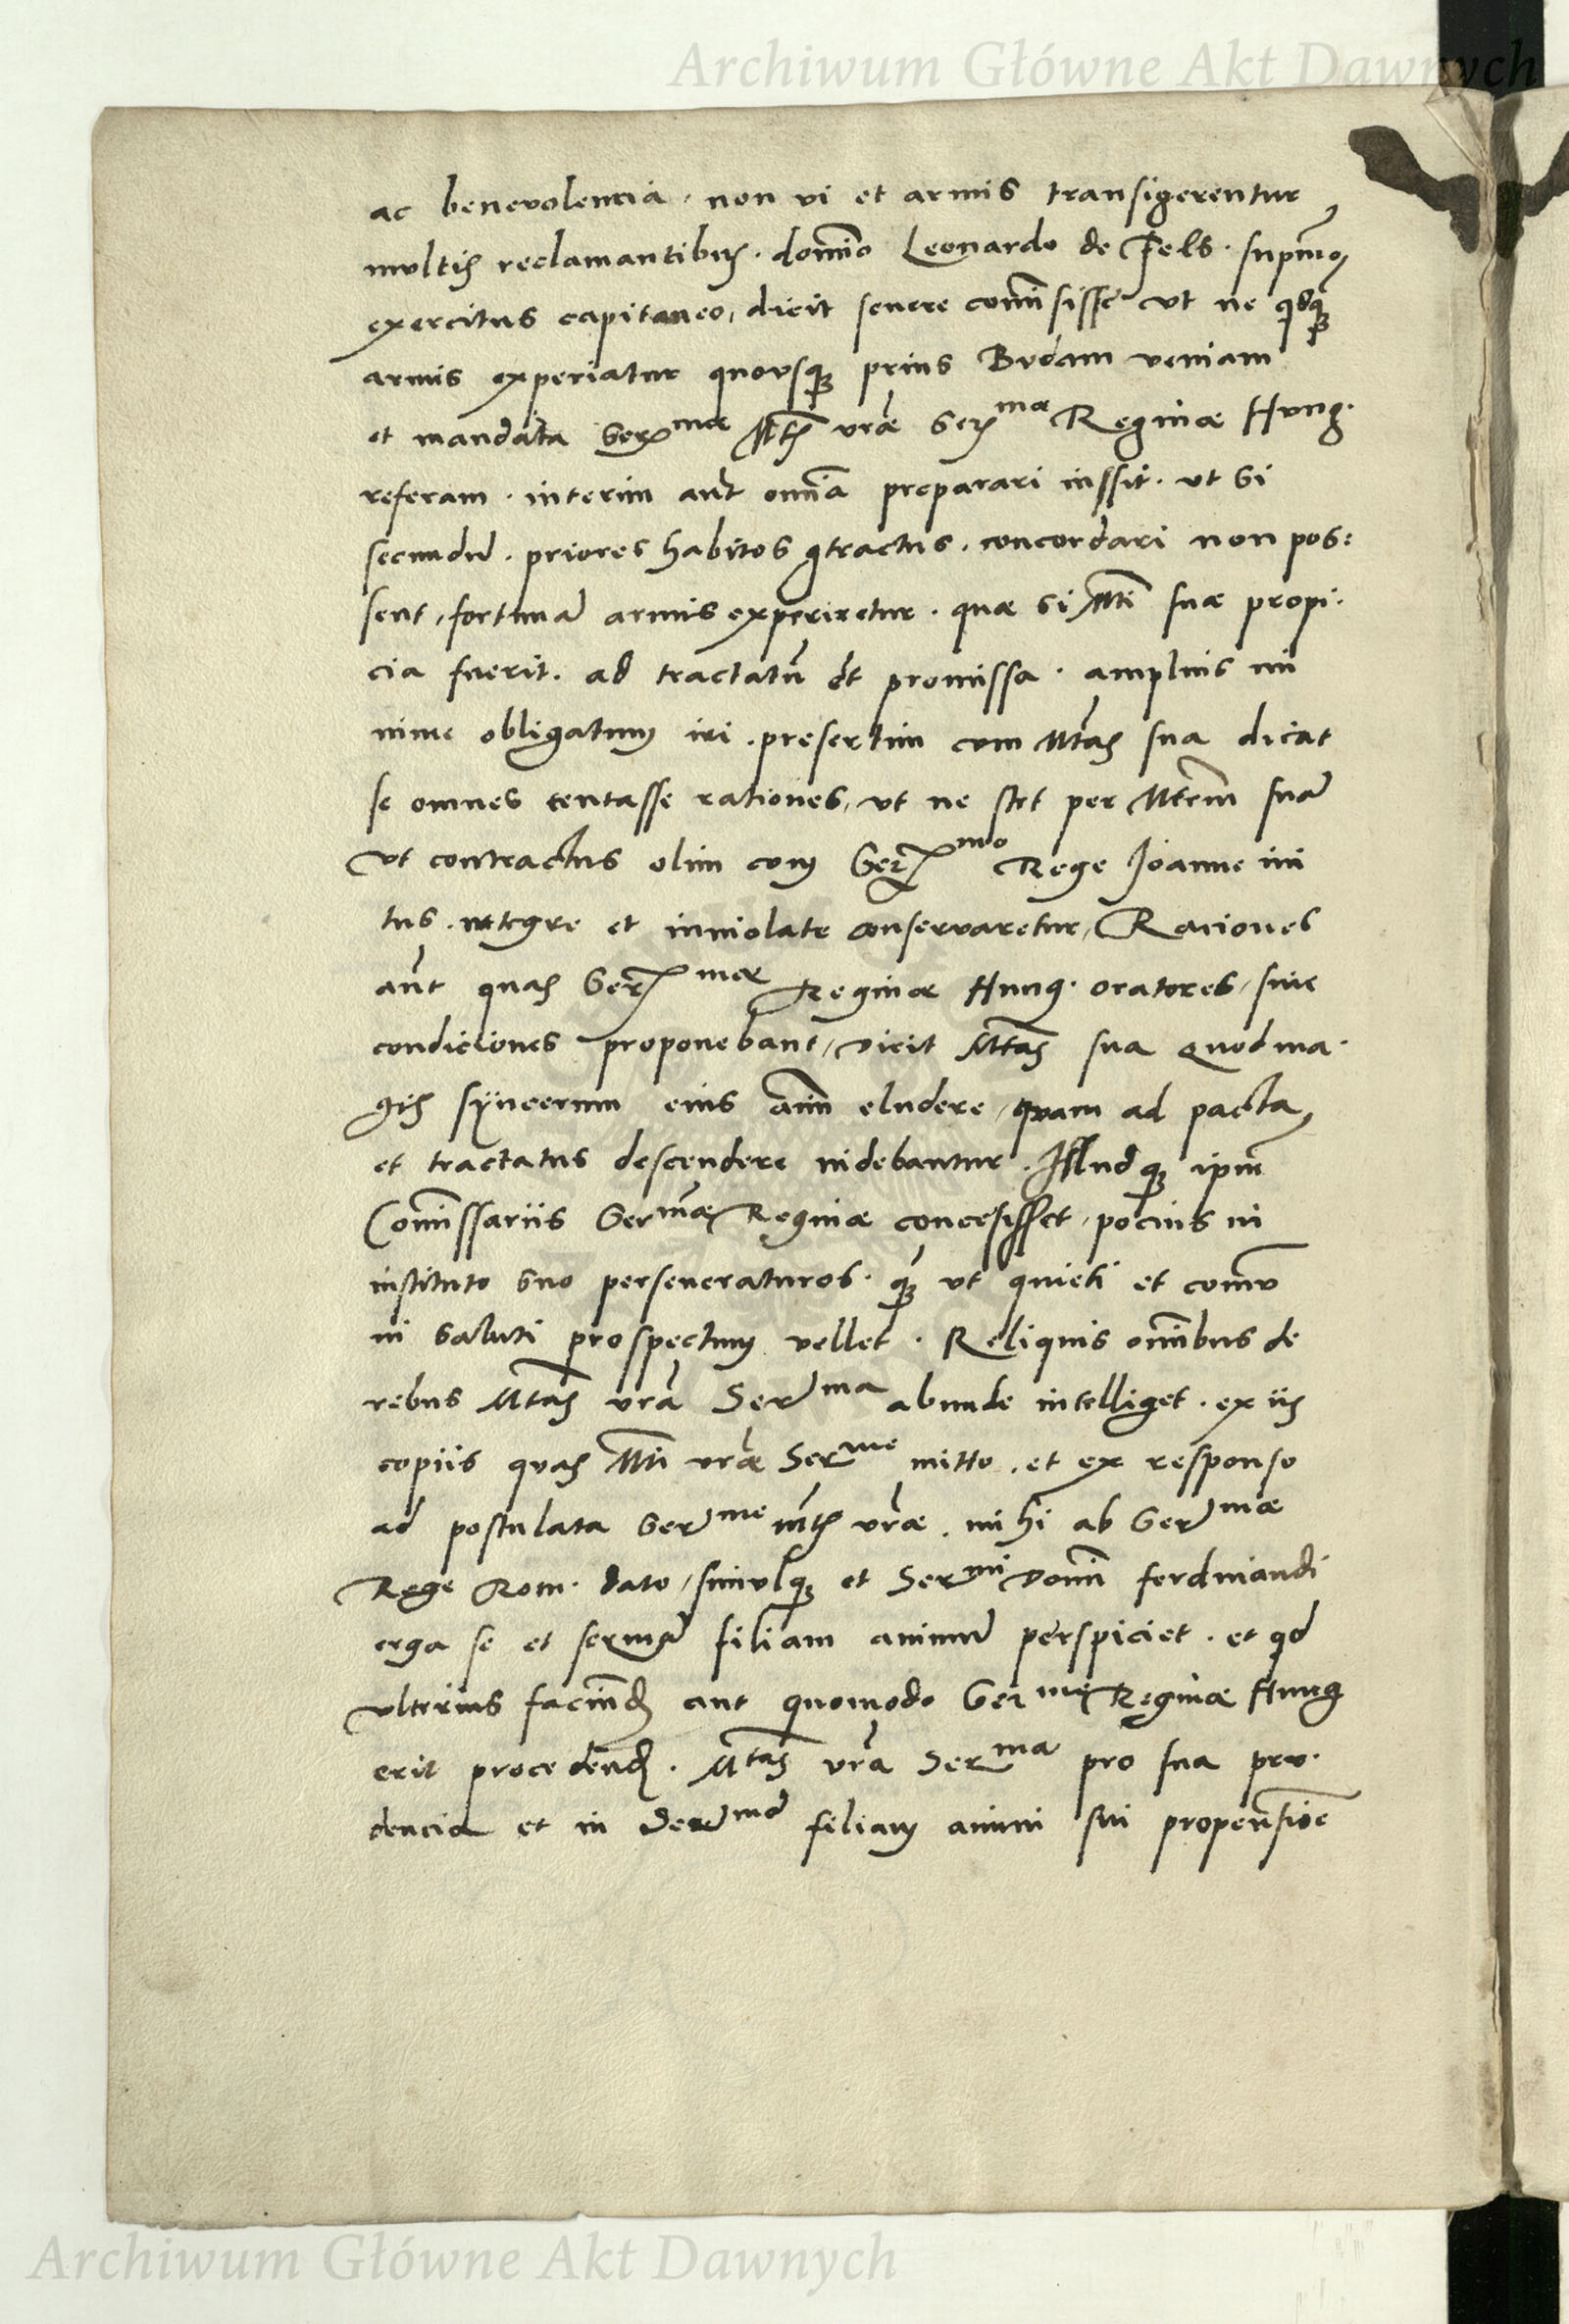 Archiwum Główne Akt Dawnych
ac benevolencia, non vi et armis transigerentur
multis reclamantibus. domino Leonardo de Fels. supmo
exercitus capitaneo, dicit severe comisisse vt ne qdqz
armis experiatur quovsqz prius Budam veniam
et mandata Serme Mtis vrae Serme Reginae Hung.
referam. interim aut omia preparari iussit. vt si
secundu. priores habitos gtractus. concordari non pos:
sent, fortuna armis experiretur. quae si Mti suae propi.
cia fuerit. ad tractatu et promissa. amplius mi
nime obligatum iri. presertim cum Mtas sua dicat
se omnes tentasse rationes, vt ne stet per Mtem sua
vt contractus olim cum Sermo Rege Joanne ini
tus. integre et inviolate conservaretur, Raciones
aut quas Sermae Reginae Hung. oratores, sive
condiciones proponebant, dicit Mtas sua quod ma.
gis synceerum eius aim eludere, quam ad pacta
et tractatus descendere videbantur. Illudqz ipm
Comissariis Sermae Reginae concesisset, pocius in
instituto suo perseveraturos. qz vt quieti et comu
ni saluti prospectum vellet. Reliquis omibus de
rebus Mtas vra Serma abunde intelliget. ex iis
copiis quas Mti vrae Serme mitto. et ex responso
ad postulata Serme mtis vrae. mihi ab Sermae
Rege Rom. dato, simulqz et Sermi domi ferdinandi
erga se et serma filiam animu perspiciet. et qd
vlterius faciend aut quomodo Serme Reginae Hung
erit procedend. Mtas vra Serma pro sua pru.
dencia et in Serma filiam animi sui propensioe
Archiwum Główne Akt Dawnych